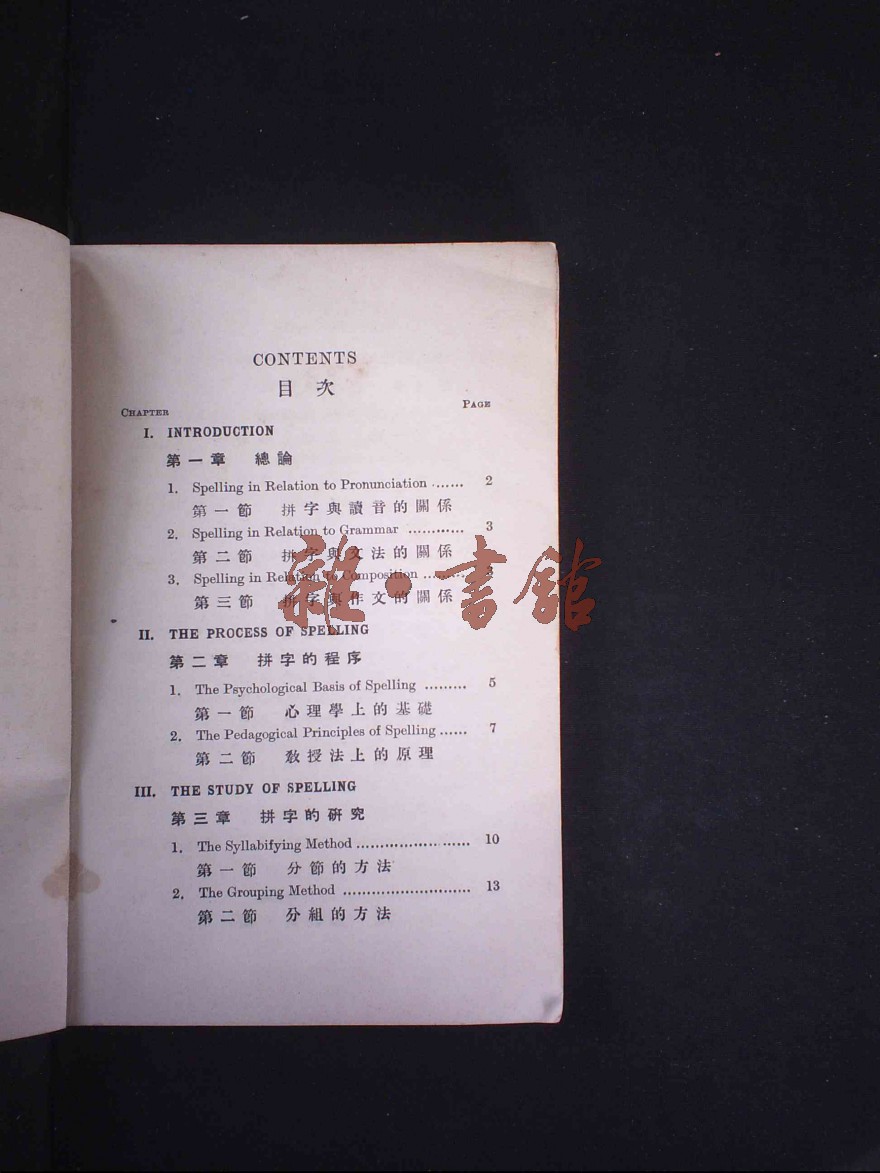 CONTENTS
目次
CHAPTER PAGE
I. INTRODUCTION
第一章 總論
1. Spelling in Relation to Pronunciation ....... 2
第一節 拼字與讀音的關係
2. Spelling in Relation to Grammar ............ 3
第二節 拼字與文法的關係
3. Spelling in Relation to Composition .........
第三節 拼字與作文的關係
雜·書館
II. THE PROCESS OF SPELLING
第二章 拼字的程序
1. The Psychological Basis of Spelling ......... 5
第一節 心理學上的基礎
2. The Pedagogical Principles of Spelling ...... 7
第二節 教授法上的原理
III. THE STUDY OF SPELLING
第三章 拼字的研究
1. The Syllabifying Method ........................ 10
第一節 分節的方法
2. The Grouping Method ........................... 13
第二節 分組的方法